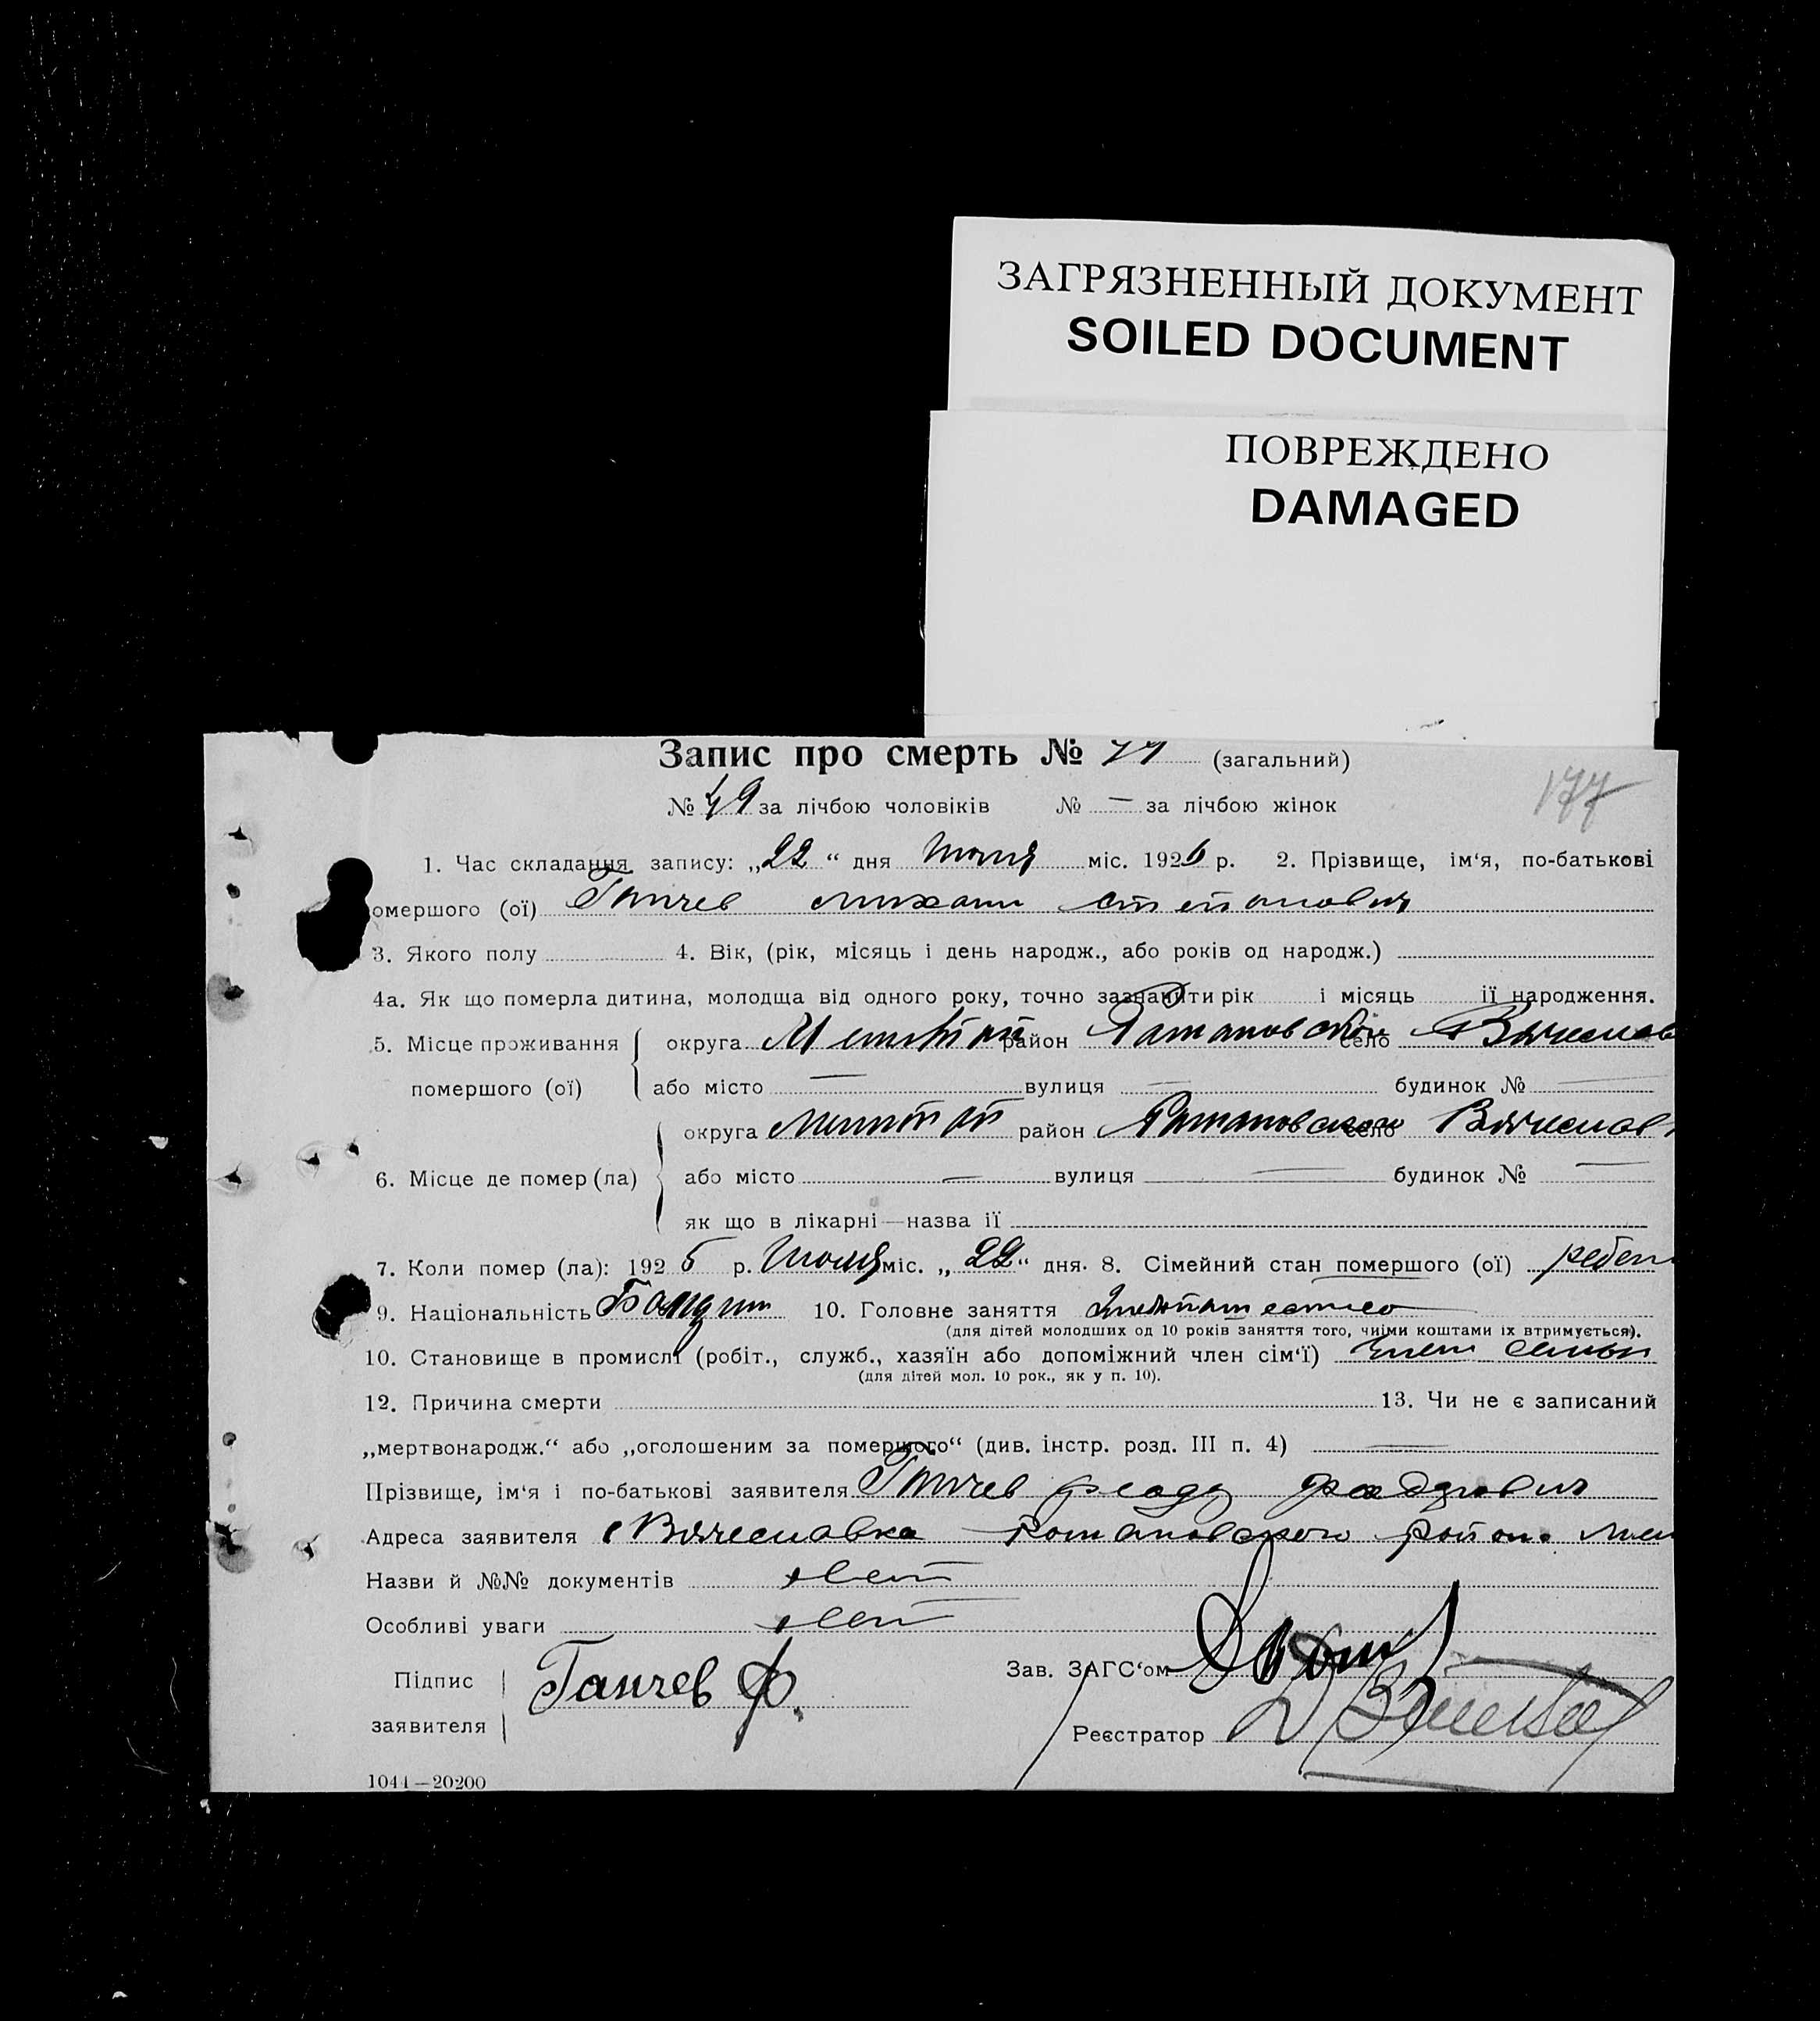 ЗАГРЯЗНЕННЫЙ ДОКУМЕНТ
SOILED DOCUMENT
ПОВРЕЖДЕНО
DAMAGED
Запис про смерть № (загальний)
177
№ 49 за лічбою чоловіків № — за лічбою жінок
1. Час складання запису: „22“ дня Июля міс. 1926 р. 2. Прізвище, ім‘я, по-батькові
омершого (ої) Ганчев Михаил Степанович
3. Якого полу 4. Вік, (рік, місяць і день народж., або років од народж.)
4а. Як що померла дитина, молодша від одного року, точно зазначити рік і місяць її народження.
5. Місце проживання округа район Романовского село Вячеслав
помершого (ої) або місто — вулиця — будинок № —
округа район Романовского село Вячеслав
6. Місце де помер (ла) або місто — вулиця — будинок № —
як що в лікарні—назва ії
7. Коли помер (ла): 1926 р. Июля міс. „22“ дня. 8. Сімейний стан помершого (ої) ребен
9. Національність 10. Головне заняття
(для дітей молодших од 10 років заняття того, чиїми коштами іх втримується).
10. Становище в промислі (робіт., служб., хазяїн або допоміжний член сім‘ї) член семьи
(для дітей мол. 10 рок., як у п. 10).
12. Причина смерти 13. Чи не є записаний
„мертвонародж.“ або „оголошеним за помершого“ (див. інстр. розд. III п. 4) —
Прізвище, ім‘я і по-батькові заявителя Ганчев
Адреса заявителя с Вячеславка Романовского район
Назви й №№ документів нет
Особливі уваги нет
Підпис
заявителя
Ганчев Ф.
Зав. ЗАГС‘ом
Реєстратор
1041—20200